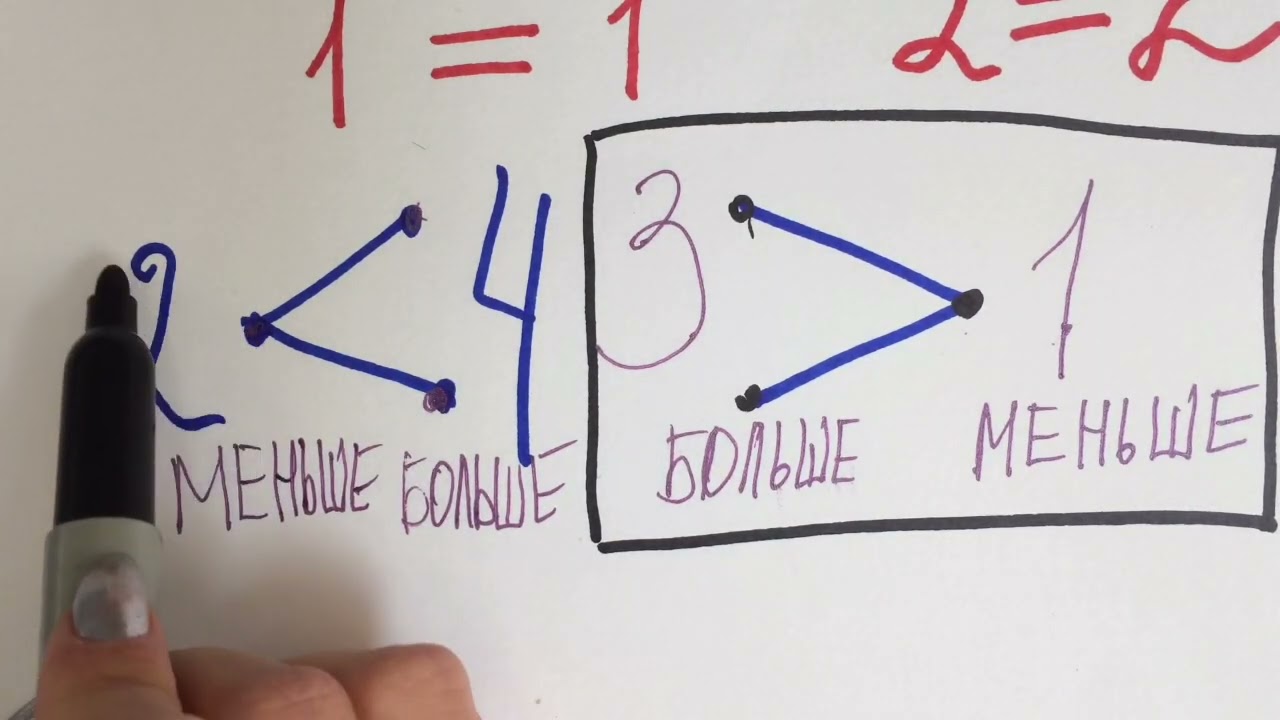 1 = 1 2 = 2
2 < 4 3 > 1
МЕНЬШЕ БОЛЬШЕ БОЛЬШЕ МЕНЬШЕ